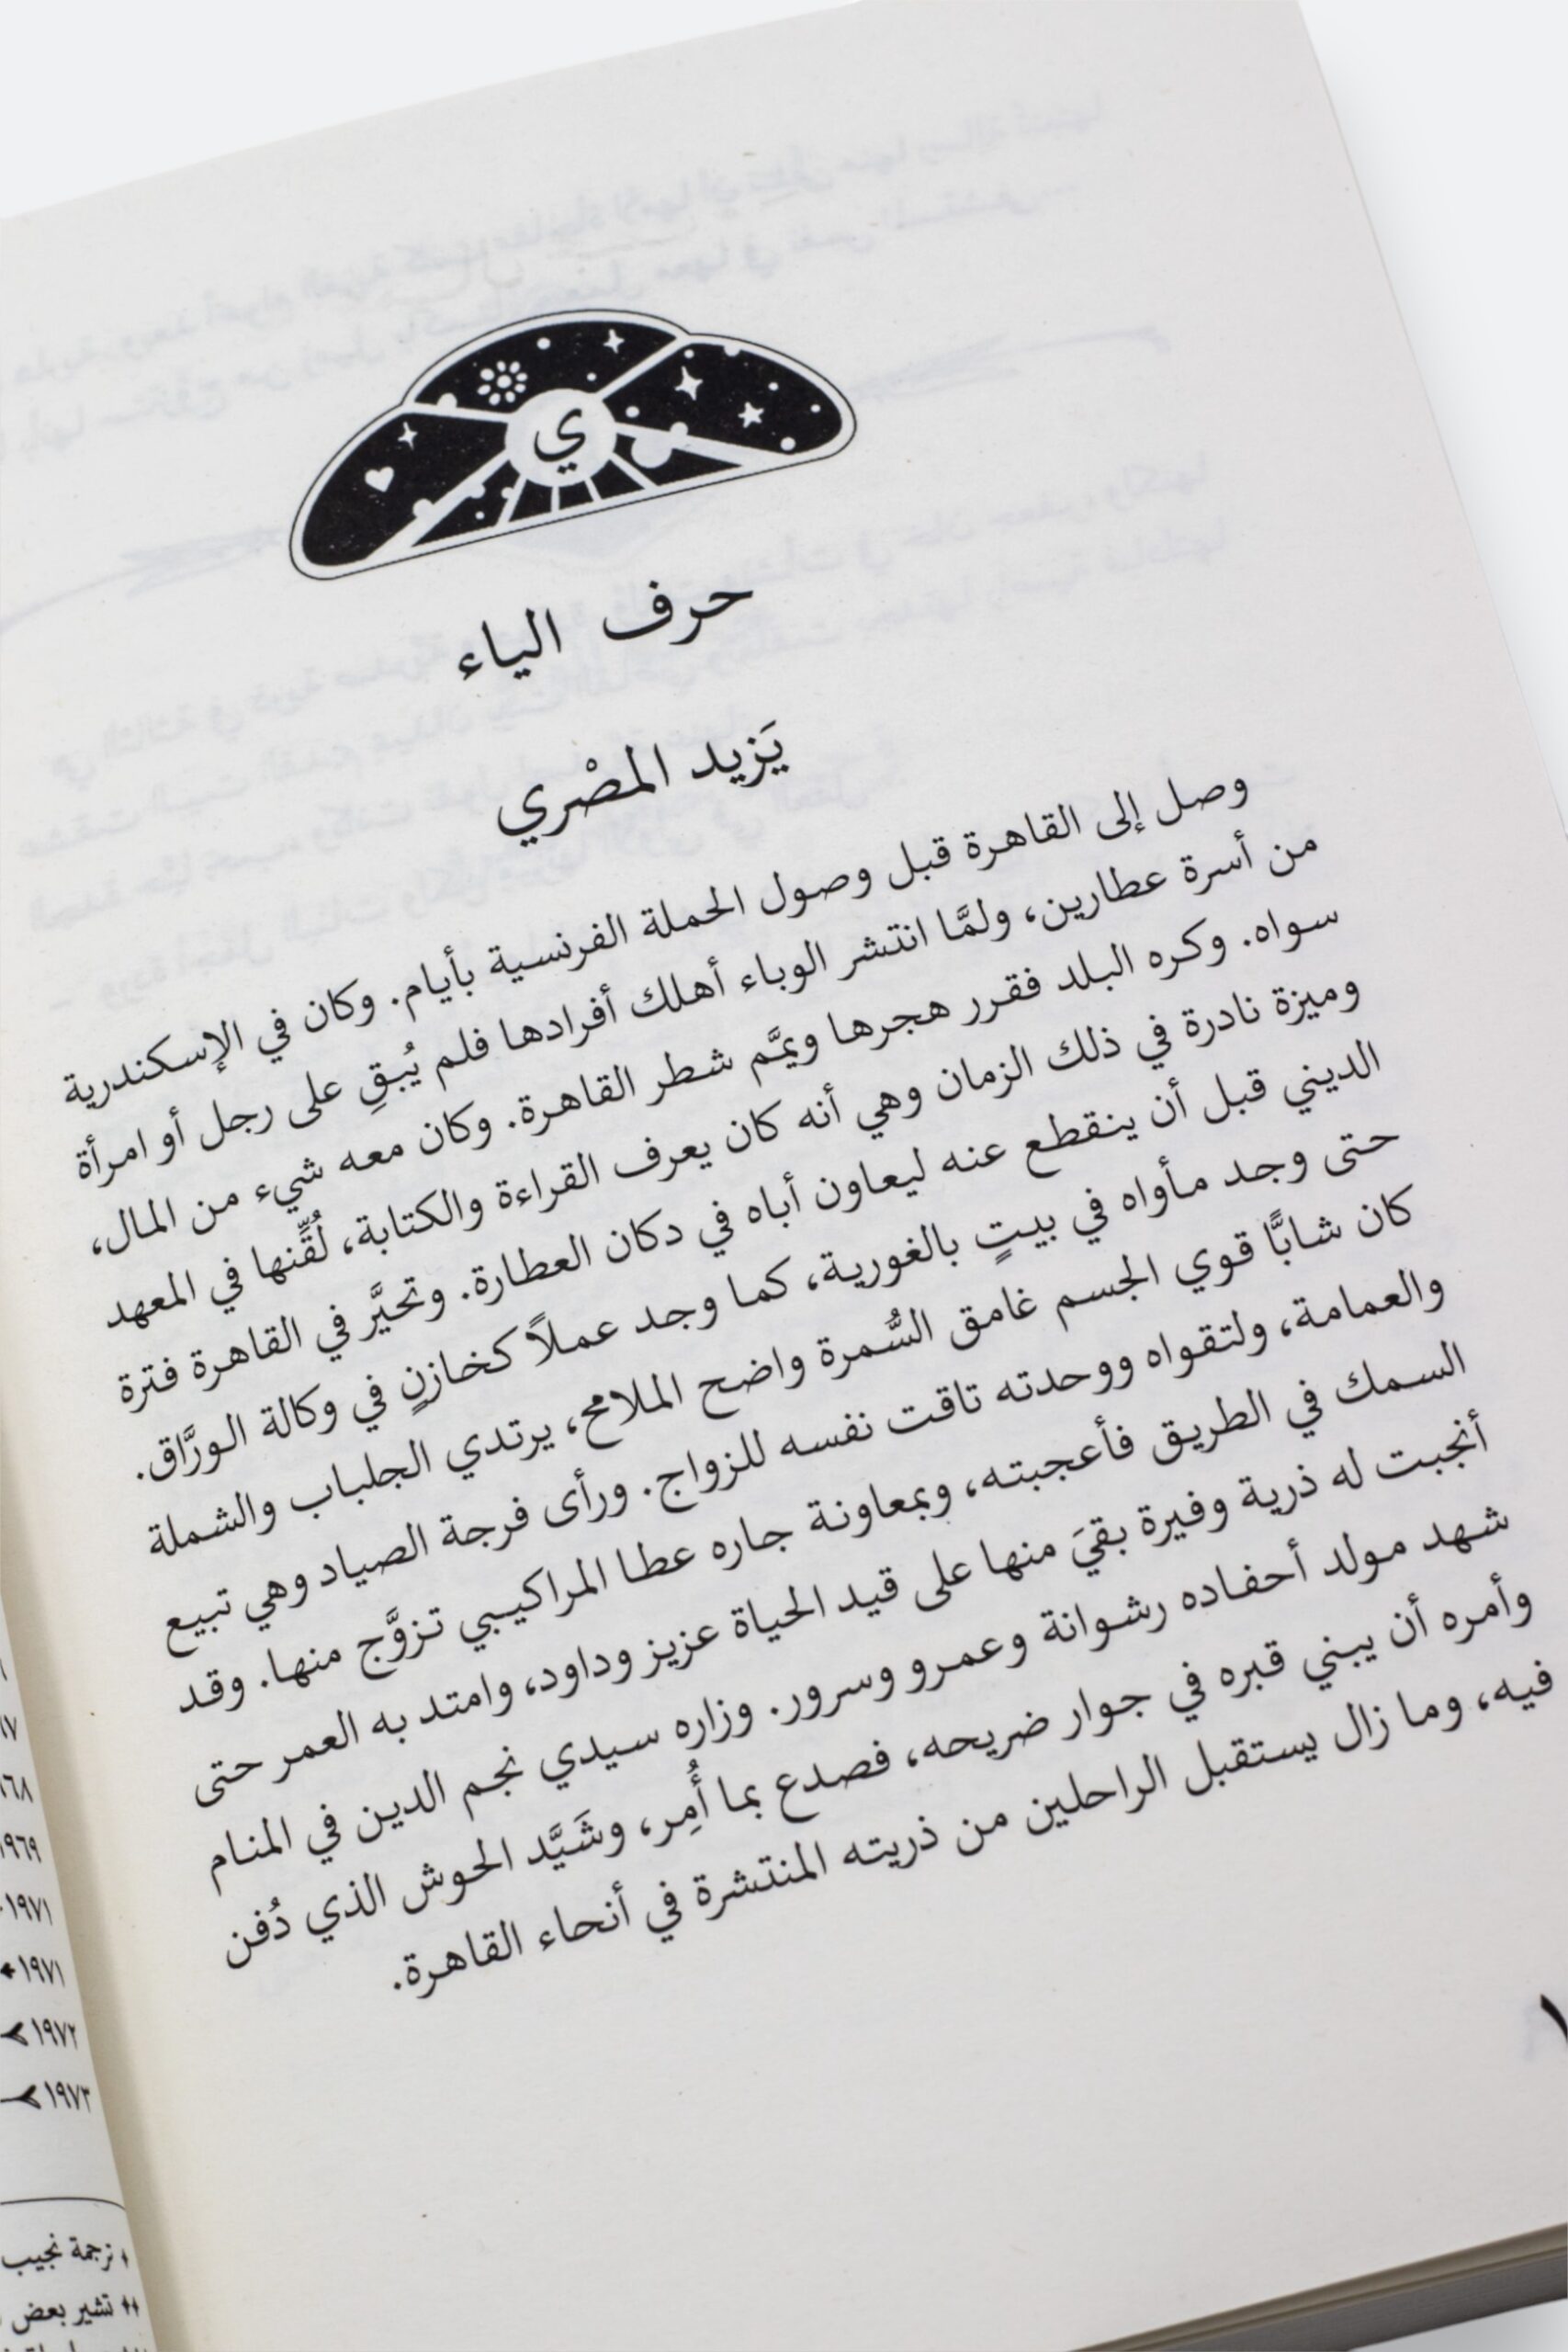 ي
حرف الياء
يَزيد المصْري
وصل إلى القاهرة قبل وصول الحملة الفرنسية بأيام. وكان في الإسكندرية
من أسرة عطارين، ولمَّا انتشر الوباء أهلك أفرادها فلم يُبقِ على رجل أو امرأة
سواه. وكره البلد فقرر هجرها ويمَّم شطر القاهرة. وكان معه شيء من المال،
وميزة نادرة في ذلك الزمان وهي أنه كان يعرف القراءة والكتابة، لُقِّنها في المعهد
الديني قبل أن ينقطع عنه ليعاون أباه في دكان العطارة. وتحيَّر في القاهرة فترة
حتى وجد مأواه في بيتٍ بالغورية، كما وجد عملاً كخازنٍ في وكالة الورَّاق.
كان شابًّا قوي الجسم غامق السُّمرة واضح الملامح، يرتدي الجلباب والشملة
والعمامة، ولتقواه ووحدته تاقت نفسه للزواج. ورأى فرجة الصياد وهي تبيع
السمك في الطريق فأعجبته، وبمعاونة جاره عطا المراكيبي تزوَّج منها. وقد
أنجبت له ذرية وفيرة بقيَ منها على قيد الحياة عزيز وداود، وامتد به العمر حتى
شهد مولد أحفاده رشوانة وعمرو وسرور. وزاره سيدي نجم الدين في المنام
وأمره أن يبني قبره في جوار ضريحه، فصدع بما أُمِر، وشَيَّد الحوش الذي دُفن
فيه، وما زال يستقبل الراحلين من ذريته المنتشرة في أنحاء القاهرة.
١٩٧١
١٩٧١
١٩٧٢
١٩٧٣
ترجمة نجيب
تشير بعض